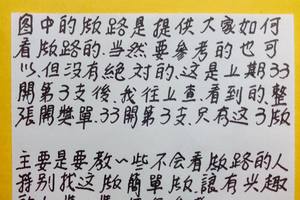 图中的版路是提供大家如何
看版路的.当然要參考的也可
以.但没有絕对的.这是上期33
開第3支後.我往上查.看到的.整
張開獎單.33開第3支.只有这3版
主要是要教一些不会看版路的人
特别找这版簡單版.讓有兴趣